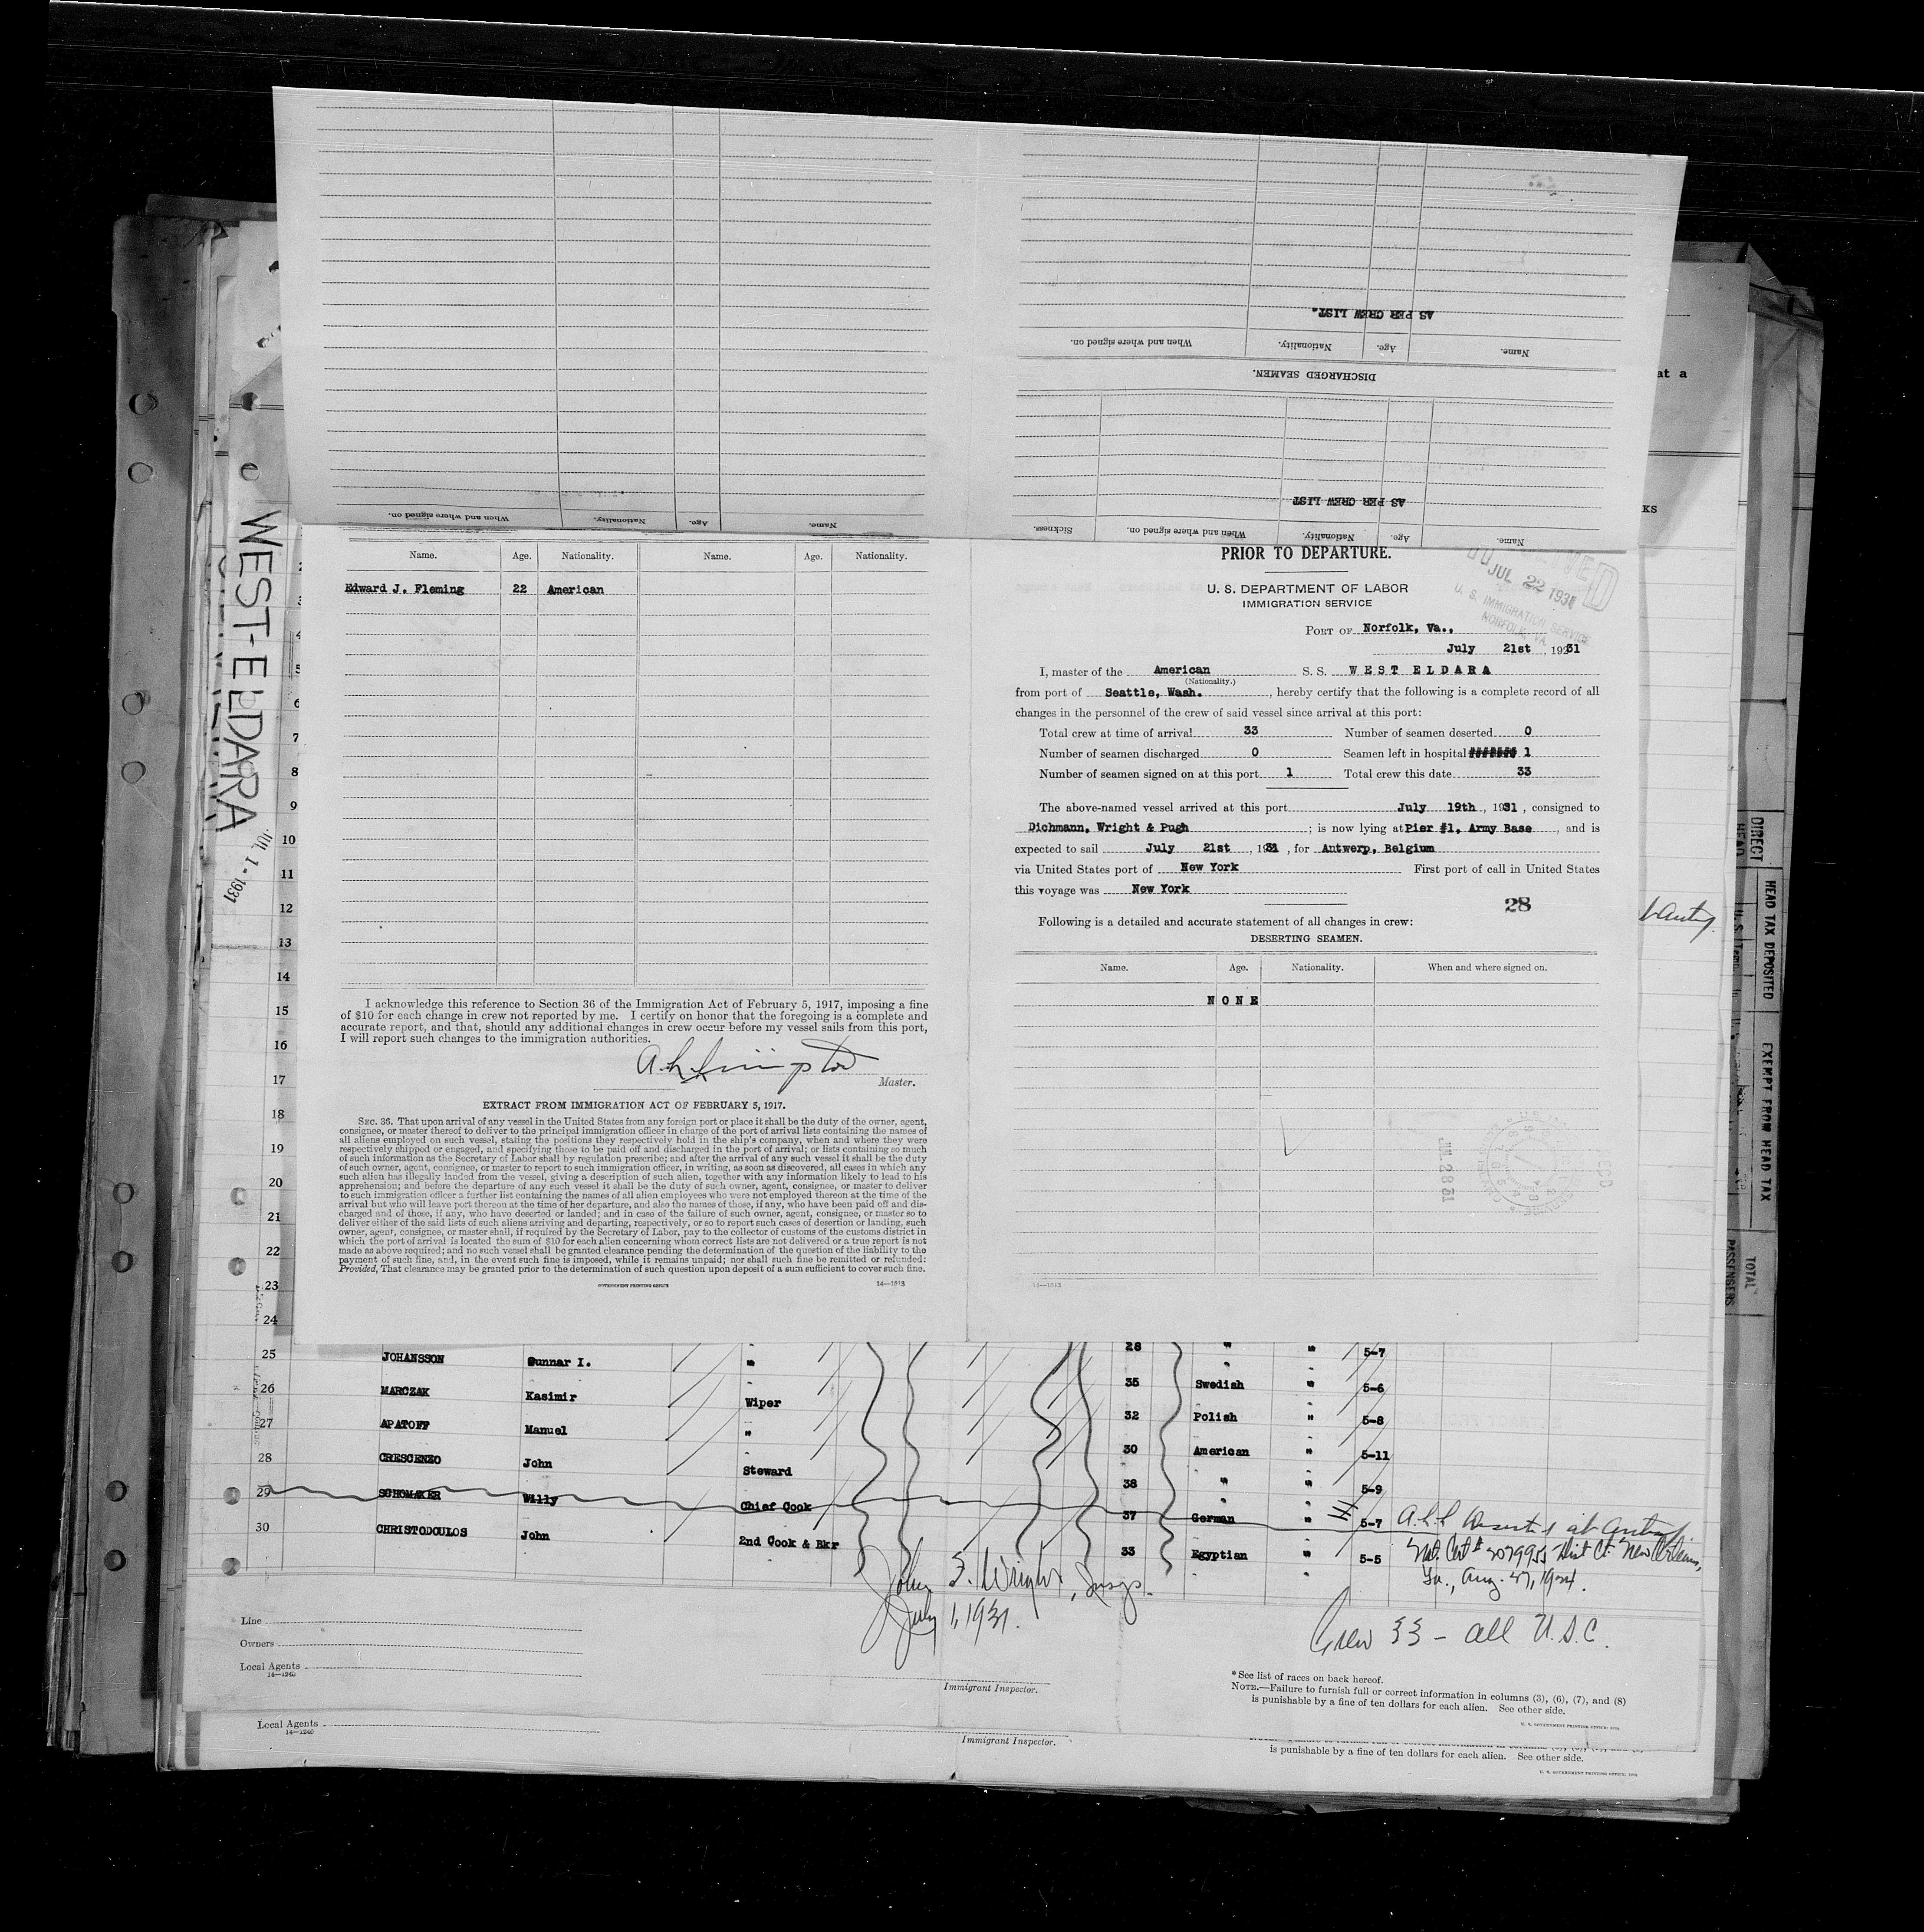 When and where signed on.
Nationality.
Age.
Name.
AS PER CREW LIST.
When and where signed on.
Nationality.
Age.
Name.
DISCHARGED SEAMEN.
AS PER CREW LIST
Sickness.
When and where signed on.
Nationality.
Age.
Name.
at a
KS
WEST-ELDARA
JUL 1 - 1931
Name. Age. Nationality. Name. Age. Nationality.
Edward J. Fleming 22 American
I acknowledge this reference to Section 36 of the Immigration Act of February 5, 1917, imposing a fine
of $10 for each change in crew not reported by me. I certify on honor that the foregoing is a complete and
accurate report, and that, should any additional changes in crew occur before my vessel sails from this port,
I will report such changes to the immigration authorities.
Master.
EXTRACT FROM IMMIGRATION ACT OF FEBRUARY 5, 1917.
SEC. 36. That upon arrival of any vessel in the United States from any foreign port or place it shall be the duty of the owner, agent,
consignee, or master thereof to deliver to the principal immigration officer in charge of the port of arrival lists containing the names of
all aliens employed on such vessel, stating the positions they respectively hold in the ship's company, when and where they were
respectively shipped or engaged, and specifying those to be paid off and discharged in the port of arrival; or lists containing so much
of such information as the Secretary of Labor shall by regulation prescribe; and after the arrival of any such vessel it shall be the duty
of such owner, agent, consignee, or master to report to such immigration officer, in writing, as soon as discovered, all cases in which any
such alien has illegally landed from the vessel, giving a description of such alien, together with any information likely to lead to his
apprehension; and before the departure of any such vessel it shall be the duty of such owner, agent, consignee, or master to deliver
to such immigration officer a further list containing the names of all alien employees who were not employed thereon at the time of the
arrival but who will leave port thereon at the time of her departure, and also the names of those, if any, who have been paid off and dis-
charged and of those, if any, who have deserted or landed; and in case of the failure of such owner, agent, consignee, or master so to
deliver either of the said lists of such aliens arriving and departing, respectively, or so to report such cases of desertion or landing, such
owner, agent, consignee, or master shall, if required by the Secretary of Labor, pay to the collector of customs of the customs district in
which the port of arrival is located the sum of $10 for each alien concerning whom correct lists are not delivered or a true report is not
made as above required; and no such vessel shall be granted clearance pending the determination of the question of the liability to the
payment of such fine, and, in the event such fine is imposed, while it remains unpaid; nor shall such fine be remitted or refunded:
Provided, That clearance may be granted prior to the determination of such question upon deposit of a sum sufficient to cover such fine.
GOVERNMENT PRINTING OFFICE
PRIOR TO DEPARTURE.
JUL 22 1931
U. S. IMMIGRATION SERVICE
NORFOLK, VA.
U. S. DEPARTMENT OF LABOR
IMMIGRATION SERVICE
PORT OF Norfolk, Va.,
July 21st, 1931
I, master of the American S. S. WEST ELDARA
(Nationality.)
from port of Seattle, Wash., hereby certify that the following is a complete record of all
changes in the personnel of the crew of said vessel since arrival at this port:
Total crew at time of arrival 33 Number of seamen deserted 0
Number of seamen discharged 0 Seamen left in hospital ####### 1
Number of seamen signed on at this port 1 Total crew this date 33
The above-named vessel arrived at this port July 19th, 1931, consigned to
Dichmann, Wright & Pugh; is now lying at Pier #1, Army Base, and is
expected to sail July 21st, 1931, for Antwerp, Belgium
via United States port of New York First port of call in United States
this voyage was New York
28
Following is a detailed and accurate statement of all changes in crew:
DESERTING SEAMEN.
Name. Age. Nationality. When and where signed on.
NONE
JUL 28 31
DIRECT
HEAD TAX DEPOSITED
EXEMPT FROM HEAD TAX
TOTAL PASSENGERS
3
4
5
6
7
8
9
10
11
12
13
14
15
16
17
18
19
20
21
22
23
24
28 " " 5-7
25 JOHANSSON Gunnar I. " 35 Swedish " 5-6
26 MARCZAK Kasimir Wiper 32 Polish " 5-8
27 APATOFF Manuel " 30 American " 5-11
28 CRESCENZO John Steward 38 " " 5-9
29 SCHOMAKER Willy Chief Cook 37 German " 5-7
30 CHRISTODOULOS John 2nd Cook & Bkr 33 Egyptian " 5-5
Dist Ct. New Orleans,
La., Aug. 27, 1924.
John F. Wright, Insp.
July 1, 1931.
Crew 33 - all U.S.C.
Line
Owners
Local Agents
14—1240
Immigrant Inspector.
* See list of races on back hereof.
NOTE.—Failure to furnish full or correct information in columns (3), (6), (7), and (8)
is punishable by a fine of ten dollars for each alien. See other side.
Local Agents
14—1240
Immigrant Inspector.
is punishable by a fine of ten dollars for each alien. See other side.